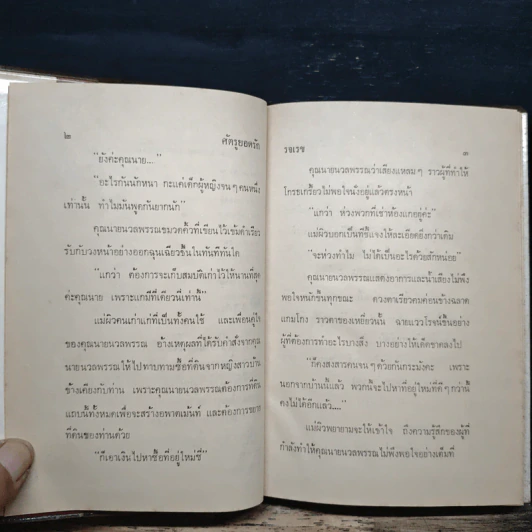 ๒
ศัตรูยอดรัก
"ยังค่ะคุณนาย..."
"อะไรกันนักหนา กะแค่เด็กผู้หญิงจน ๆ คนหนึ่ง
เท่านั้น ทำไมมันพูดกันยากนัก"
คุณนายนวลพรรณขมวดคิ้วที่เขียนไว้เข้มดำเรียว
รับกับวงหน้าอย่างออกฉุนเฉียวขึ้นในทันทีทันใด
"แกว่า ต้องการจะเก็บสมบัติเก่าไว้ให้นานที่สุด
ค่ะคุณนาย เพราะแกมีที่เดียวนี่เท่านี้"
แม่ผิวคนเก่าแก่ที่เป็นทั้งคนใช้ และเพื่อนคู่ใจ
ของคุณนายนวลพรรณ อ้างเหตุผลที่ได้รับคำสั่งจากคุณ
นายนวลพรรณให้ไปทาบทามซื้อที่ดินจากหญิงสาวบ้าน
ข้างเคียงกับท่าน เพราะคุณนายนวลพรรณต้องการที่ดิน
แถบนี้ทั้งหมดเพื่อจะสร้างอพาตเม้นท์ และต้องการขยาย
ที่ดินของท่านด้วย
"ก็เอาเงินไปหาซื้อที่อยู่ใหม่ซี่"
รจเรข
๓
คุณนายนวลพรรณว่าเสียงแหลม ๆ ราวผู้ที่ทำให้
โกรธเกรี้ยวไม่พอใจนั่งอยู่แล้วตรงหน้า
"แกว่า ห่วงพวกที่เช่าห้องแกอยู่ค่ะ"
แม่ผิวบอกเป็นที่ชี้แจงให้ละเอียดยิ่งกว่าเดิม
"จะห่วงทำไม ไม่ได้เป็นอะไรด้วยสักหน่อย"
คุณนายนวลพรรณแสดงอาการและน้ำเสียงไม่พึง
พอใจหนักขึ้นทุกขณะ ดวงตาเรียวคมค่อนข้างฉลาด
แกมโกง ราวตาของเหยี่ยวนั้น ฉายแววโรจน์ขึ้นอย่าง
ผู้ที่ต้องการทำอะไรบางสิ่ง บางอย่างให้เด็ดขาดลงไป
"ก็คงสงสารคนจน ๆ ด้วยกันกระมังคะ เพราะ
นอกจากบ้านนี้แล้ว พวกนี้จะไปหาที่อยู่ใหม่ที่ดี ๆ กว่านี้
คงไม่ได้อีกแล้ว...."
แม่ผิวพยายามจะให้เข้าใจ ถึงความรู้สึกของผู้ที่
กำลังทำให้คุณนายนวลพรรณไม่พึงพอใจอย่างเต็มที่